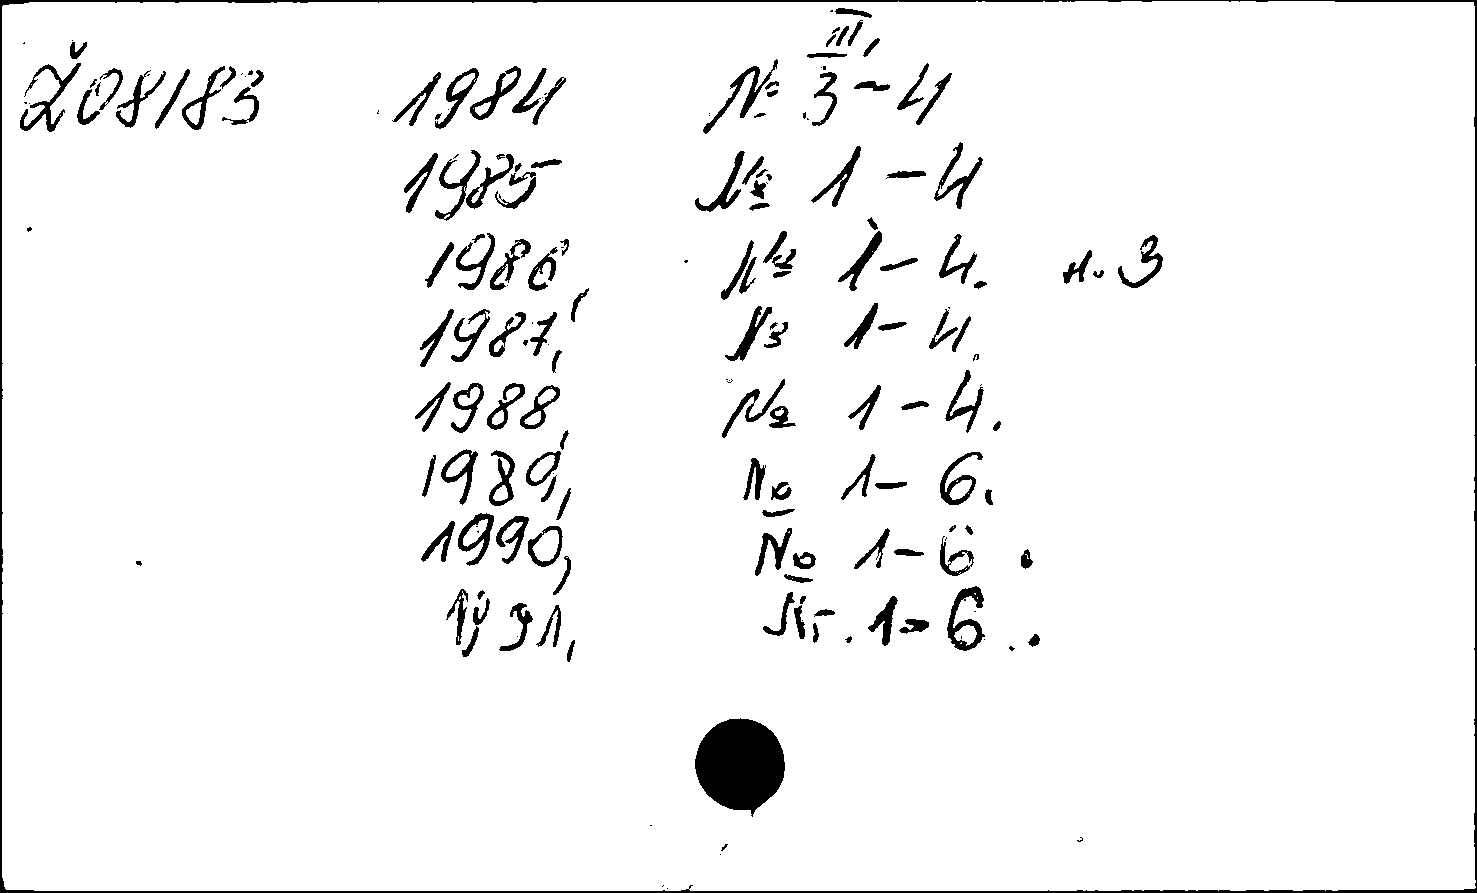 III,
Ž08183 1984 № 3-4
1985 № 1-4
1986, № 1-4. н. 3
1987, № 1-4
1988, № 1-4.
1989, № 1-6.
1990, № 1-6.
1991, 1-6.